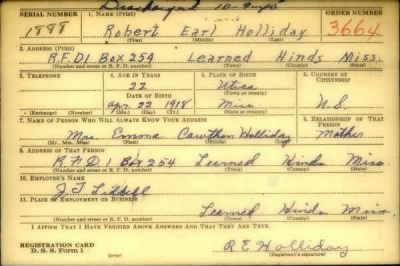 Discharged 10-9-45
SERIAL NUMBER 1. NAME (Print) ORDER NUMBER
1888 Robert Earl Holliday 3664
(First) (Middle) (Last)
2. ADDRESS (Print)
R.F.D1 Box 254 Learned Hinds Miss.
(Number and street or R. F. D. number) (Town) (County) (State)
3. TELEPHONE 4. AGE IN YEARS 5. PLACE OF BIRTH 6. COUNTRY OF CITIZENSHIP
22 Utica
DATE OF BIRTH (Town or county)
Apr. 22 1918 Miss U.S.
(Exchange) (Number) (Mo.) (Day) (Yr.) (State or country)
7. NAME OF PERSON WHO WILL ALWAYS KNOW YOUR ADDRESS 8. RELATIONSHIP OF THAT PERSON
Mrs. Emma Cawthon Holliday Mother
(Mr., Mrs., Miss) (First) (Middle) (Last)
9. ADDRESS OF THAT PERSON
R.F.D1 Box 254 Learned Hinds Miss.
(Number and street or R. F. D. number) (Town) (County) (State)
10. EMPLOYER'S NAME
J. T.
11. PLACE OF EMPLOYMENT OR BUSINESS
Learned Hinds Miss.
(Number and street or R. F. D. number) (Town) (County) (State)
I AFFIRM THAT I HAVE VERIFIED ABOVE ANSWERS AND THAT THEY ARE TRUE.
REGISTRATION CARD
D. S. S. Form 1 R E Holliday
(Registrant's signature)